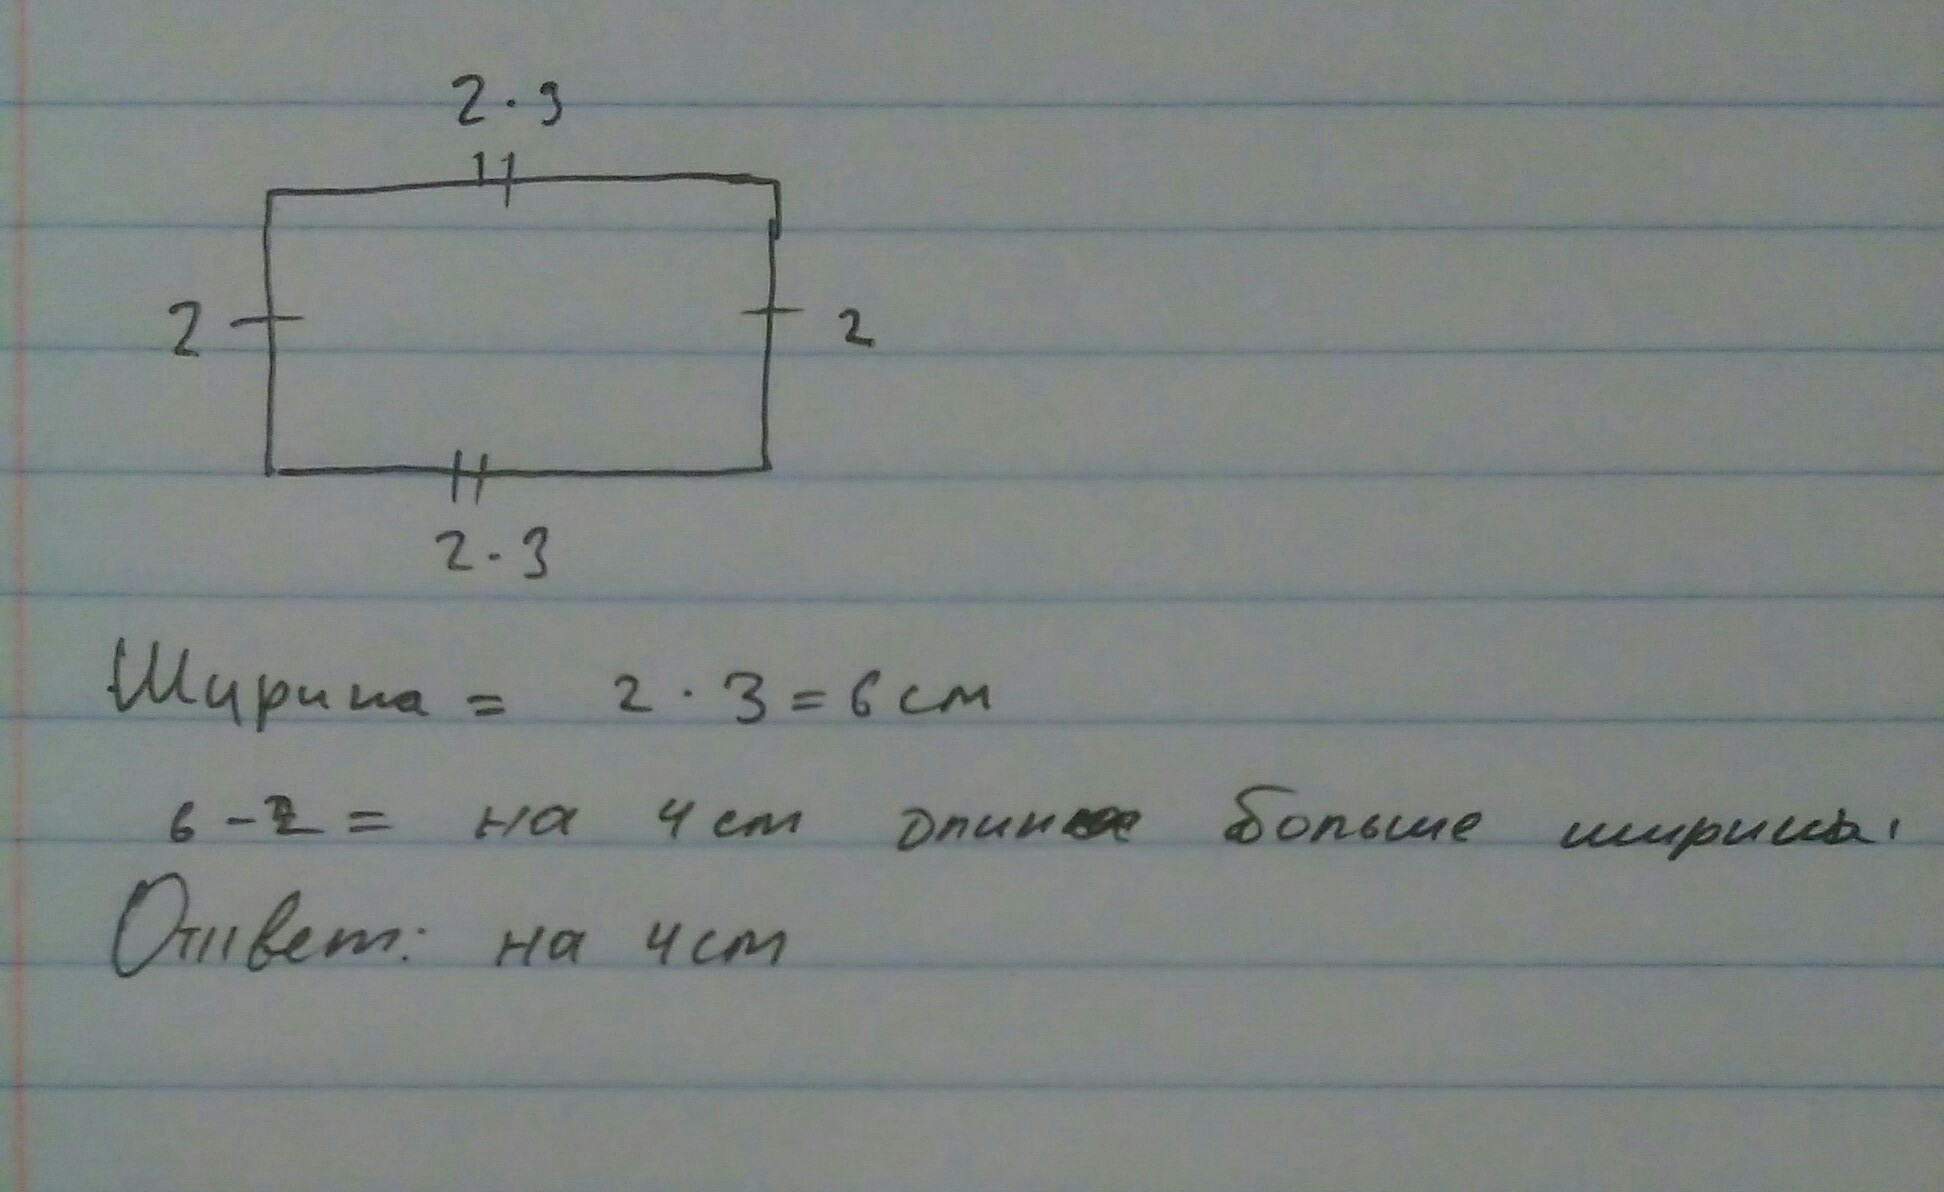 2 · 3
2
2
2 · 3
Ширина = 2 · 3 = 6 см
6 - 2 = на 4 см больше ширины.
Ответ: на 4 см